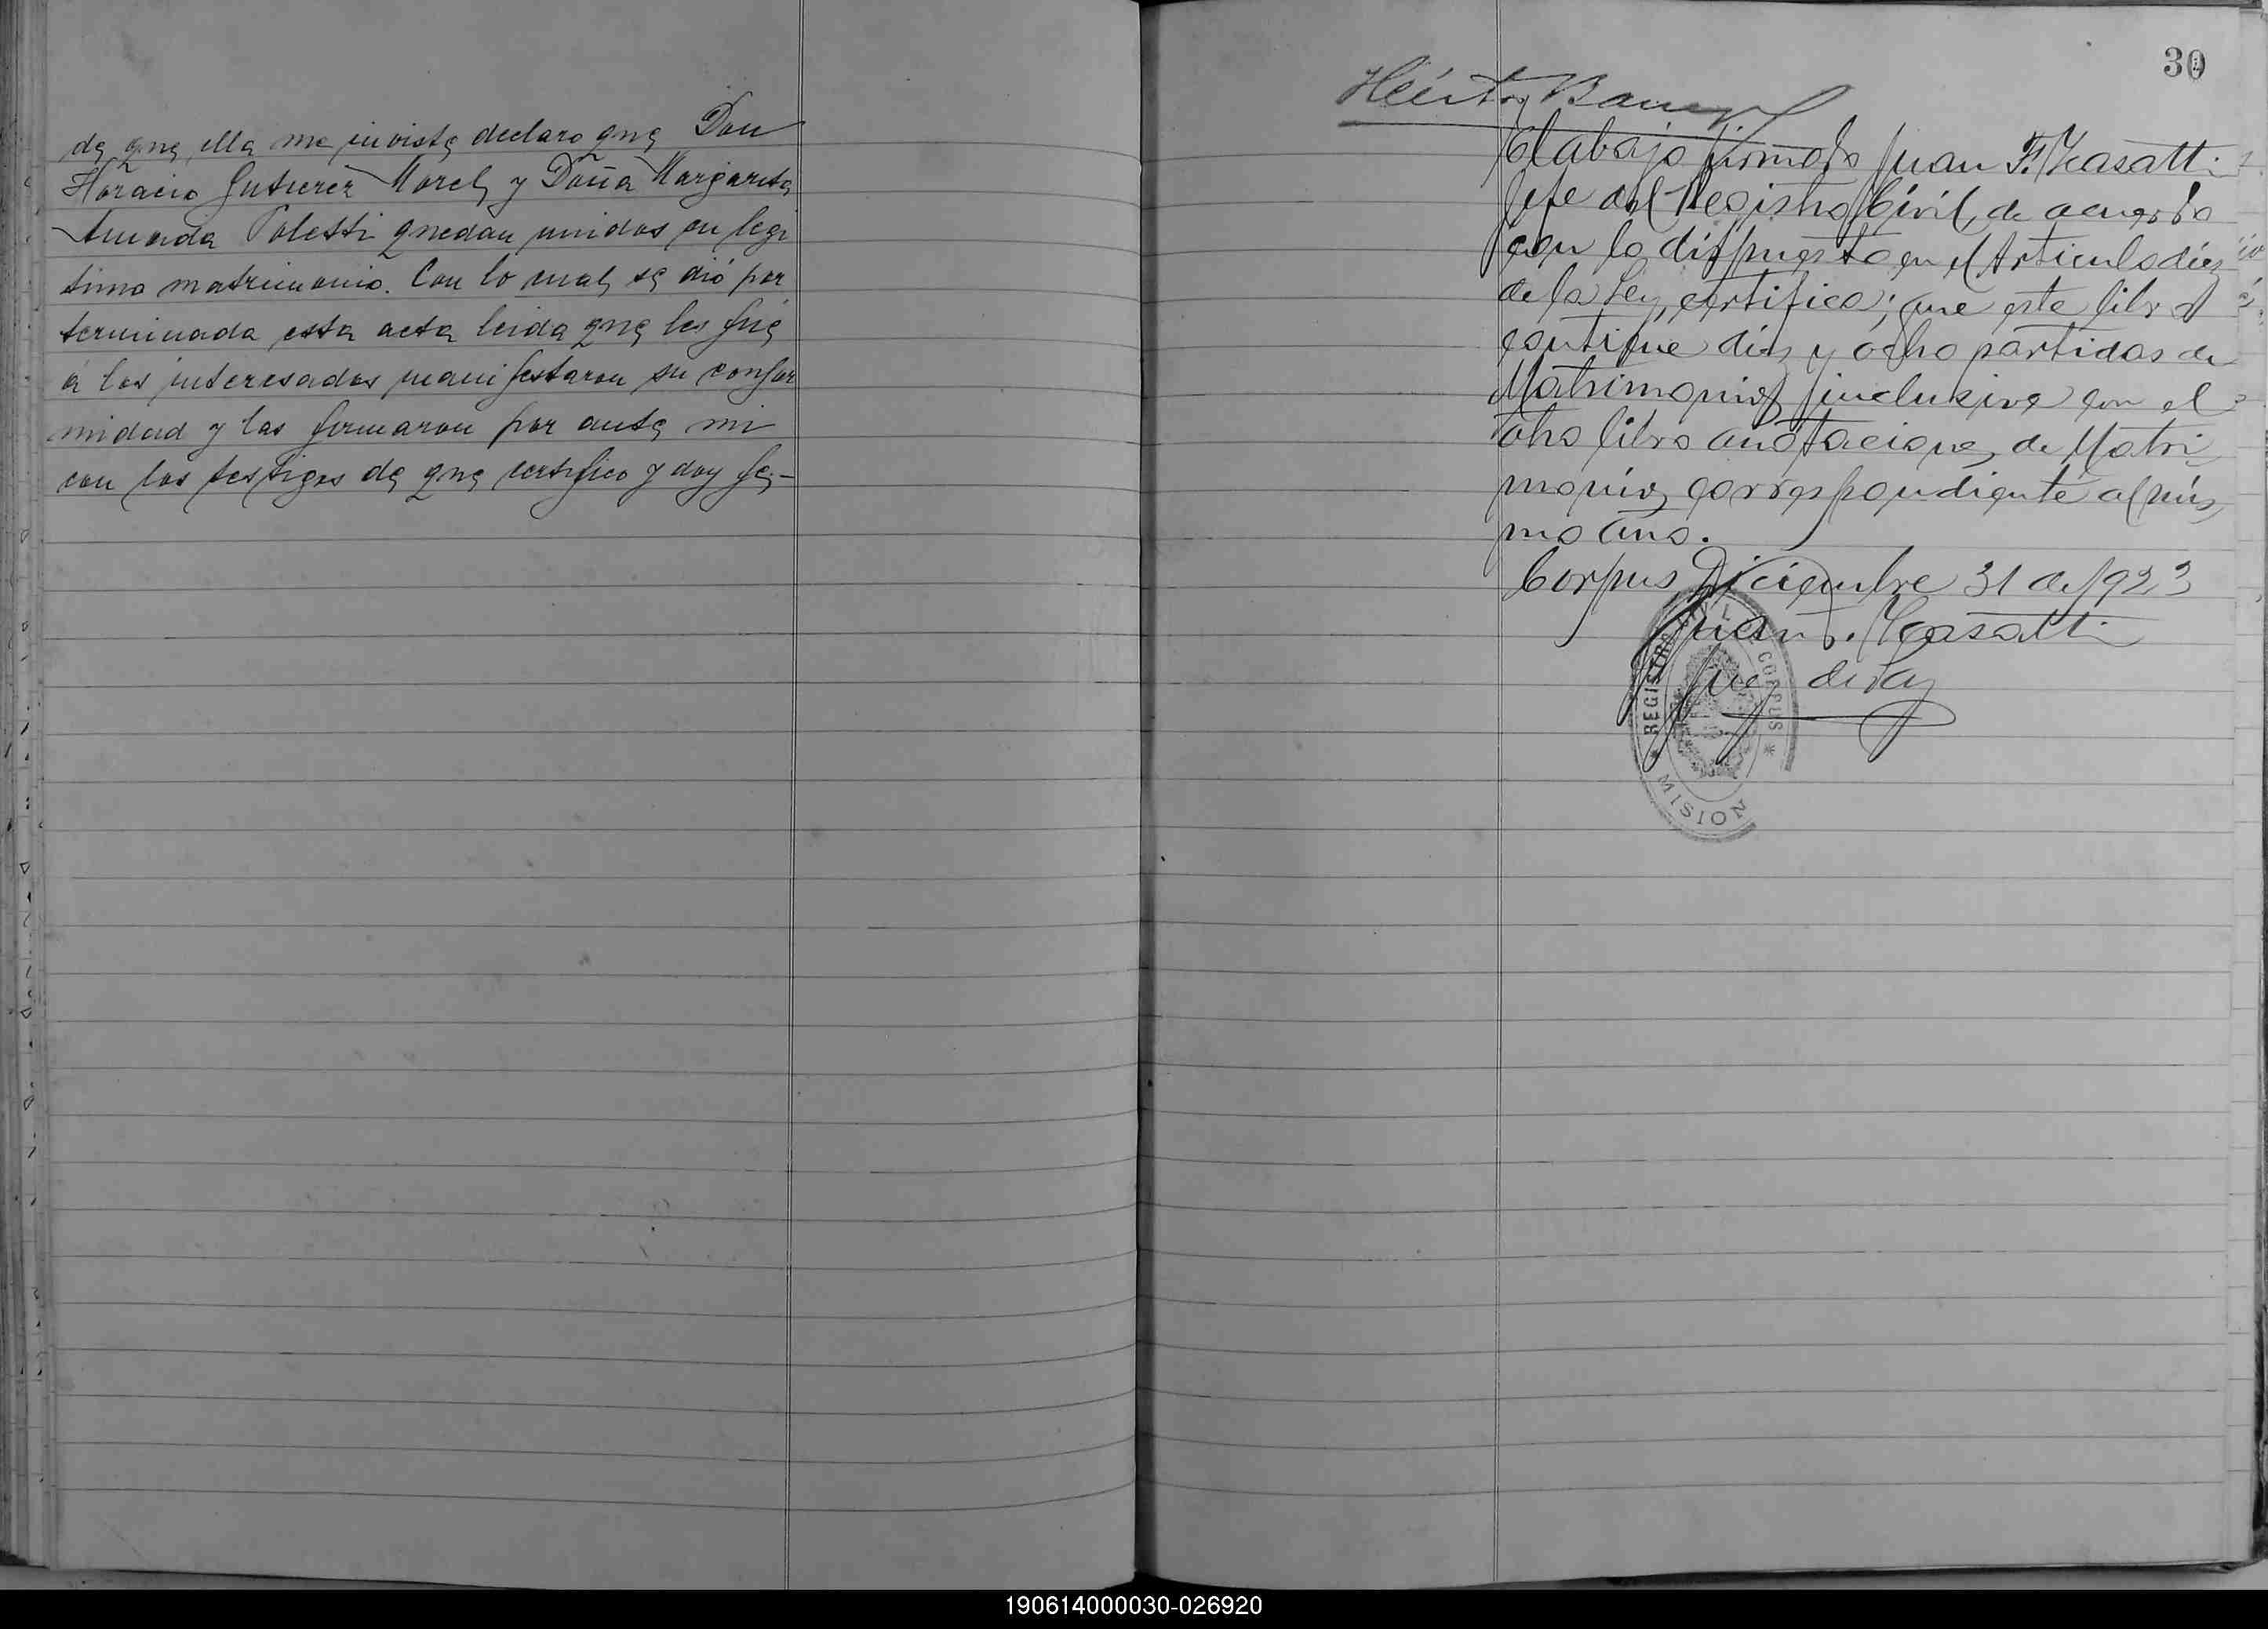 de que ella me inviste declaro que Don
Horacio Gutierez Morel, y Doña Margarita
Amanda Poletti quedan unidos en legi
timo matrimonio. Con lo cual, se dió por
terminada esta acta leida que les fué
á los interesados manifestaron su confor
midad y las firmaron por ante mi
con los testigos de que certifico y doy fé,-
30
Héctor
El abajo firmado Juan F. Kasatti
Jefe del Registro Civil, de acuerdo
con lo dispuesto en el Articulo diez
de la Ley, certifica; que este libro
contiene diez y ocho partidas de
Matrimonios inclusive con el
otro libro anotaciones de Matri
monios correspondiente al mis
mo año.
Corpus, Diciembre 31 de 1923
Juan F. Kasatti
Juez de Paz
REGISTRO CIVIL CORPUS
MISION
190614000030-026920